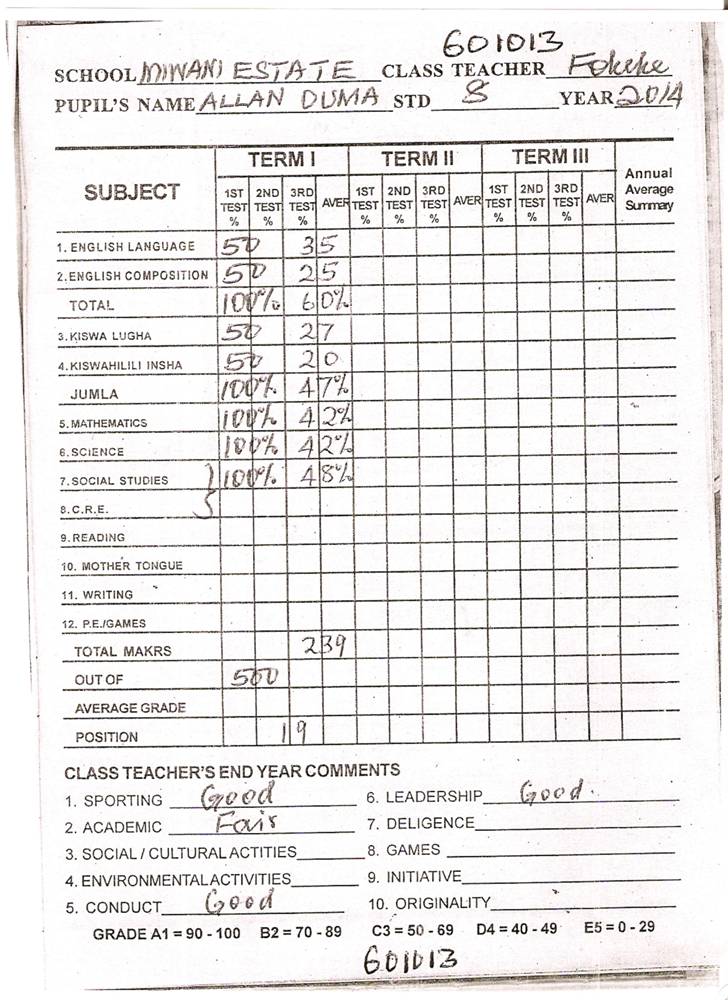 601013
SCHOOL MIWANI ESTATE CLASS TEACHER Fokeke
PUPIL'S NAME ALLAN DUMA STD 8 YEAR 2014
TERM I TERM II TERM III
SUBJECT 1ST TEST % 2ND TEST % 3RD TEST % AVER 1ST TEST % 2ND TEST % 3RD TEST % AVER 1ST TEST % 2ND TEST % 3RD TEST % AVER Annual Average Summary
1. ENGLISH LANGUAGE 50 35
2. ENGLISH COMPOSITION 50 25
TOTAL 100% 60%
3. KISWA LUGHA 50 27
4. KISWAHILILI INSHA 50 20
JUMLA 100% 47%
5. MATHEMATICS 100% 42%
6. SCIENCE 100% 42%
7. SOCIAL STUDIES 100% 48%
8. C.R.E.
9. READING
10. MOTHER TONGUE
11. WRITING
12. P.E./GAMES
TOTAL MAKRS 239
OUT OF 500
AVERAGE GRADE
POSITION 19
CLASS TEACHER'S END YEAR COMMENTS
1. SPORTING Good 6. LEADERSHIP Good.
2. ACADEMIC Fair 7. DELIGENCE
3. SOCIAL / CULTURAL ACTITIES 8. GAMES
4. ENVIRONMENTAL ACTIVITIES 9. INITIATIVE
5. CONDUCT Good 10. ORIGINALITY
GRADE A1 = 90 - 100 B2 = 70 - 89 C3 = 50 - 69 D4 = 40 - 49 E5 = 0 - 29
601013